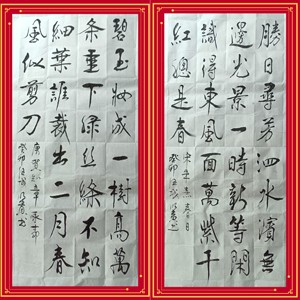 勝日尋芳泗水濱無
邊光景一時新等閒
識得東風面萬紫千
紅總是春
宋朱熹春日
癸卯
碧玉妝成一樹高萬
條垂下綠絲絛不知
細葉誰裁出二月春
風似剪刀
唐賀知章
癸卯